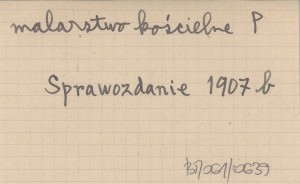 malarstwo kościelne P
Sprawozdanie 1907 b
BJ/061/00639